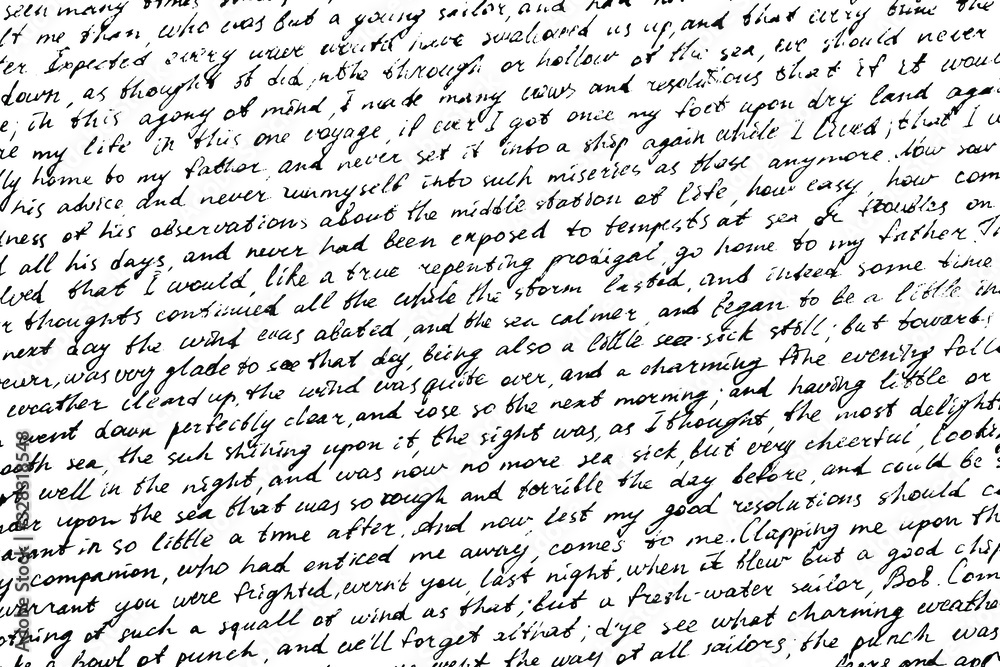 seen many times
lt me than, who was but a young sailor, and had
ter. Expected every wave would have swallowed us up, and that every time the
down, as thought it did, in the through or hollow of the sea, we should never
e; in this agony of mind, I made many vows and resolutions that if it woul
re my life in this one voyage, if ever I got once my foot upon dry land aga
ly home to my father, and never set it into a ship again while I lived; that I w
his advice and never run myself into such miseries as these anymore. Now saw
dness of his observations about the middle station of life, how easy, how com
d all his days, and never had been exposed to tempests at sea or troubles on
lved that I would, like a true repenting prodigal, go home to my father. Th
r thoughts continued all the while the storm lasted, and indeed some time
next day the wind was abated, and the sea calmer, and began to be a little in
ever, was very glade to see that day, being also a little sea-sick still; but towards
weather cleard up, the wind was quite over, and a charming fine evening follo
went down perfectly clear, and rose so the next morning; and having little or
ooth sea, the sun shining upon it, the sight was, as I thought, the most delightf
pt well in the night, and was now no more sea sick, but very cheerful, looki
nder upon the sea that was so rough and terrible the day before, and could be s
asant in so little a time after. And now lest my good resolutions should c
y companion, who had enticed me away, comes to me. Clapping me upon th
warrant you were frighted, wern't you, last night, when it blew but a good ship
othing of such a squall of wind as that; but a fresh-water sailor, Bob. Com
ke a bowl of punch, and we'll forget all that; d'ye see what charming weathe
went the way of all sailors; the punch was
Adobe Stock | #328318548